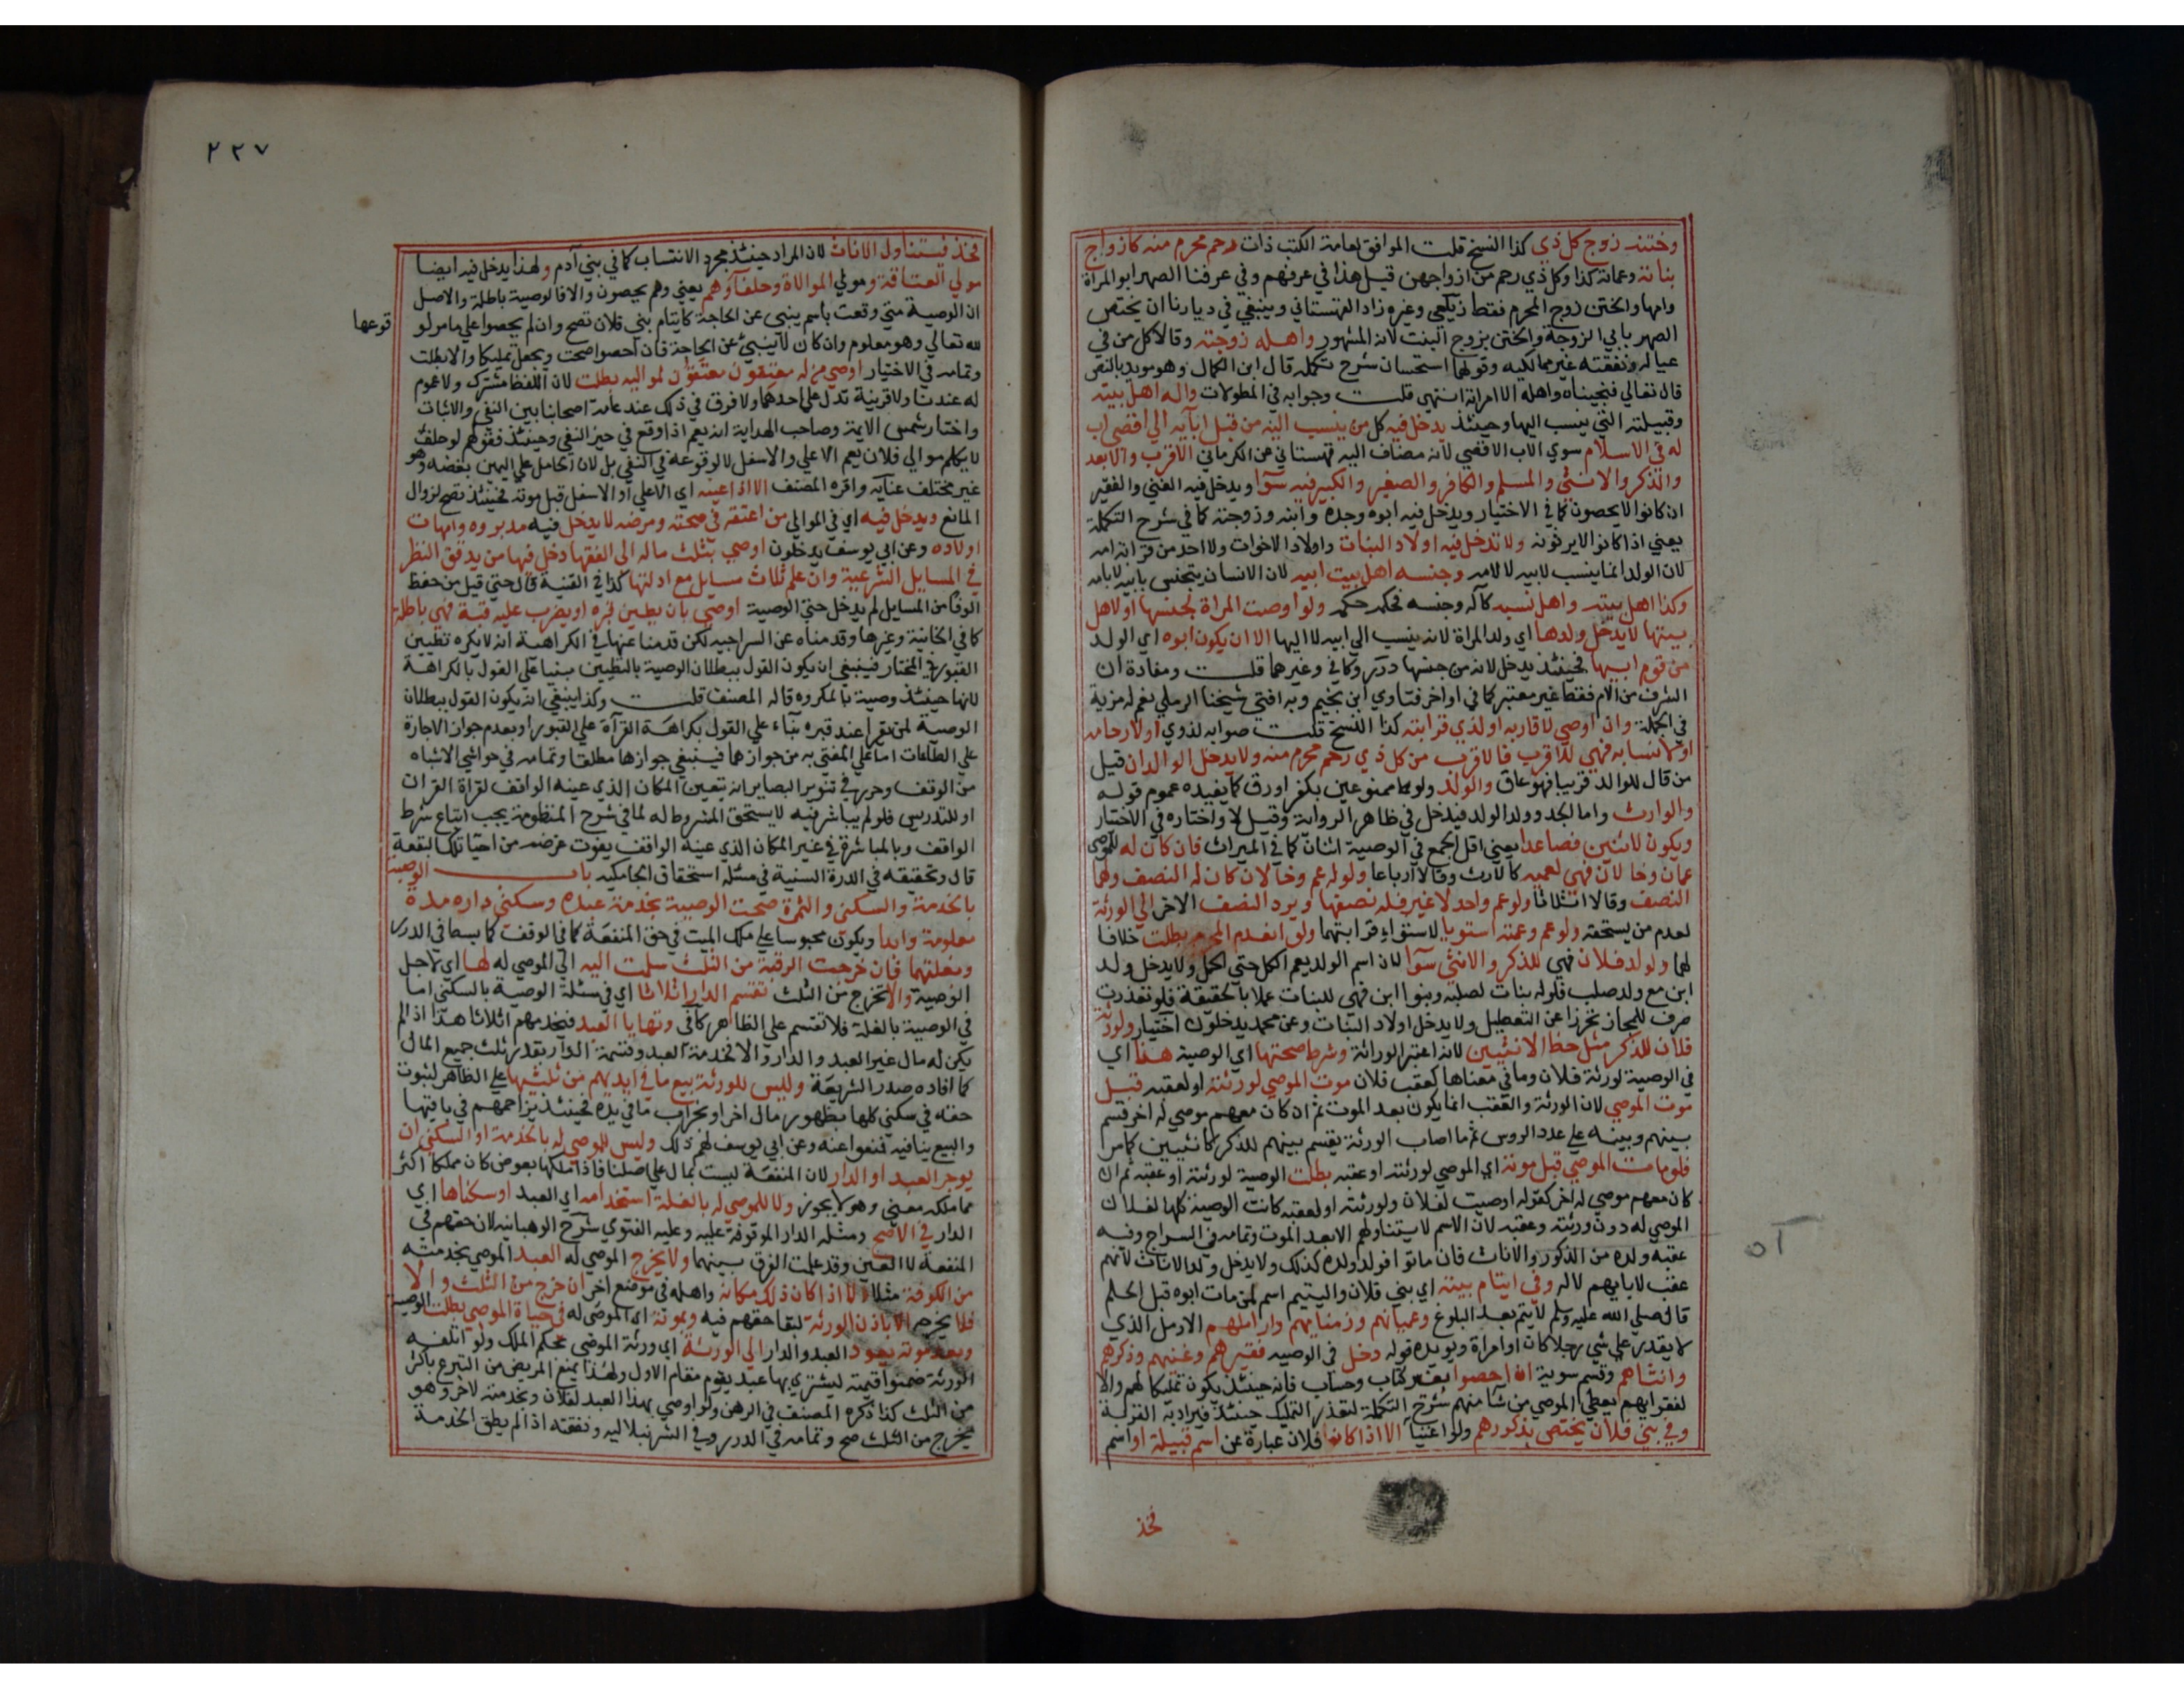 وختنه زوج كل ذي كذا النسخ قلت الموافق لعامة الكتب ذات رحم محرم منه كازواج
بناته وعماته كذا وكل ذي رحم من ازواجهن قيل هذا في عرفهم وفي عرفنا الصهر ابو المراة
وامها والختن زوج المحرم فقط زيلعي وغيره زاد القهستاني وينبغي في ديارنا ان يختص
الصهر بابي الزوجة والختن بزوج البنت لانه المشهور واهله زوجته وقالا كل من في
عياله ونفقته غير مماليكه وقولهما استحسان شرح تكمله قال ابن الكمال وهو مويد بالنص
قال تعالي فنجيناه واهله الا امراته انتهى قلت وجوابه في المطولات واله اهل بيته
وقبيلته التي ينسب اليها وحينئذ يدخل فيه كل من ينسب اليه من قبل ابآيه الي اقصي اب
له في الاسلام سوي الاب الاقصي لانه مضاف اليه قهستاني عن الكرماني الاقرب والابعد
والذكر والانثي والمسلم والكافر والصغير والكبير فيه سوآ ويدخل فيه الغني والفقير
ان كانوا لا يحصون كما في الاختيار ويدخل فيه ابوه وجده وابنه وزوجته كما في شرح التكملة
يعني اذا كانوا لا يرثونه ولا تدخل فيه اولاد البنات واولاد الاخوات ولا احد من قرابة امه
لان الولد انما ينسب لابيه لا لامه وجنسه اهل بيت ابيه لان الانسان يتجنس بابيه لا بامه
وكذا اهل بيته واهل نسبه كآله وجنسه فحكمه حكمه ولو اوصت المراة لجنسها او لاهل
بيتها لا يدخل ولدها اي ولد المراة لانه ينسب الي ابيه لا اليها الا ان يكون ابوه اي الولد
من قوم ابيها فحينئذ يدخل لانه من جنسها درر وكافي وغيرهما قلت ومفادة ان
الشرف من الام فقط غير معتبر كما في اواخر فتاوي ابن نجيم وبه افتي شيخنا الرملي نعم له مزية
في الجملة وان اوصي لاقاربه او لذي قرابته كذا النسخ قلت صوابه لذوي او لارحامه
او لانسابه فهي للاقرب فالاقرب من كل ذي رحم محرم منه ولا يدخل الوالدان قيل
من قال للوالد قريبا فهو عاق والولد ولو ممنوعين بكفر او رق كما يفيده عموم قوله
والوارث واما الجد وولد الولد فيدخل في ظاهر الرواية وقيل لا واختاره في الاختيار
ويكون للاثنين فصاعدا يعني اقل الجمع في الوصية اثنان كما في الميراث فان كان له للموصي
عمان وخالان فهي لعميه كالارث وقالا ارباعا ولو له عم وخالان كان له النصف ولهما
النصف وقالا اثلاثا ولو عم واحد لا غير فله نصفها ويرد النصف الاخر الي الورثة
لعدم من يستحقه ولو عم وعمة استويا لاستواء قرابتهما ولو انعدم المحرم بطلت خلافا
لهما ولولد فلان فهي للذكر والانثي سوآ لان اسم الولد يعم الكل حتي الحمل ولا يدخل ولد
ابن مع ولد صلب فلو له بنات لصلبه وبنوا ابن فهي للبنات عملا بالحقيقة فلو تعذرت
صرف للمجاز تحرزا عن التعطيل ولا يدخل اولاد البنات وعن محمد يدخلون اختيار ولورثة
فلان للذكر مثل حظ الانثيين لانه اعتبر الوراثة وشرط صحتها اي الوصية هنا اي
في الوصية لورثة فلان وما في معناها كعقب فلان موت الموصي لورثته او لعقبه قبل
موت الموصي لان الورثة والعقب انما يكون بعد الموت ثم ان كان معهم موصي له اخر قسم
بينهم وبينه علي عدد الروس ثم ما اصاب الورثة يقسم بينهم للذكر كانثيين كما مر
فلو مات الموصي قبل موته اي الموصي لورثته او عقبه بطلت الوصية لورثته او عقبه ثم ان
كان معهم موصي له اخر كقوله اوصيت لفلان ولورثته او لعقبه كانت الوصية كلها لفلان
الموصي له دون ورثته وعقبه لان الاسم لا يتناولهم الا بعد الموت وتمامه في السراج وفيه
عقبه ولده من الذكور والاناث فان ماتوا فولد ولده كذلك ولا يدخل ولد الاناث لانهم
عقب لابايهم لا له وفي ايتام بينه اي بني فلان واليتيم اسم لمن مات ابوه قبل الحلم
قال صلي الله عليه وسلم لا يتم بعد البلوغ وعميانهم وزمنايهم واراملهم الارمل الذي
لا يقدر علي شي رجلا كان او امراة ويويده قوله دخل في الوصيه فقيرهم وغنيهم وذكرهم
وانثاهم وقسم سوية ان احصوا بغير كتاب وحساب فانه حينئذ يكون تمليكا لهم والا
لفقرايهم يعطي الموصي من شآ منهم شرح التكملة لتعذر التمليك حينئذ فيراد به القربة
وفي بني فلان يختص بذكورهم ولو اغنيآ الا اذا كان فلان عبارة عن اسم قبيلة او اسم
فخذ
٢٢٧
فخذ فيتناول الاناث لان المراد حينئذ مجرد الانتساب كما في بني آدم ولهذا يدخل فيه ايضا
مولي العتاقة ومولي الموالاة وحلفآوهم يعني وهم يحصون والا فالوصية باطلة والاصل
ان الوصية متي وقعت باسم ينبي عن الحاجة كايتام بني فلان تصح وان لم يحصوا علي ما مر لو
قوعها
لله تعالي وهو معلوم وان كان لا ينبيئ عن الحاجة فان احصوا صحت ويجعل تمليكا والا بطلت
وتمامه في الاختيار اوصي من له معتقون معتقون لمواليه بطلت لان اللفظ مشترك ولا عموم
له عندنا ولا قرينة تدل علي احدهما ولا فرق في ذلك عند عامة اصحابنا بين النفي والاثبات
واختار شمس الايمة وصاحب الهداية انه يعم اذا وقع في حيز النفي وحينئذ فقولهم لو حلف
لا يكلم موالي فلان يعم الاعلي والاسفل لا لوقوعه في النفي بل لان الحامل علي اليمين بغضه وهو
غير مختلف عنايه واقره المصنف الا اذا عينه اي الاعلي او الاسفل قبل موته فحينئذ تصح لزوال
المانع ويدخل فيه اي في الموالي من اعتقه في صحته ومرضه لا يدخل فيه مدبروه وامهات
اولاده وعن ابي يوسف يدخلون اوصي بثلث ماله الي الفقها دخل فيها من يدقق النظر
في المسايل الشرعية وان علم ثلاث مسايل مع ادلتها كذا في القنية قال حتي قيل من حفظ
الوفا من المسايل لم يدخل حتي الوصية اوصي بان يطين قبره او يضرب عليه قبة فهي باطلة
كما في الخانية وغيرها وقدمناه عن السراجيه لكن قدمنا عنها في الكراهية انه لا يكره تطيين
القبور في المختار فينبغي ان يكون القول ببطلان الوصية بالتطيين مبنيا علي القول بالكراهة
لانها حينئذ وصية بالمكروه قاله المصنف قلت وكذا ينبغي ان يكون القول ببطلان
الوصية لمن يقرا عند قبره بنآء علي القول بكراهة القرآة علي القبور او بعدم جواز الاجارة
علي الطاعات اما علي المفتي به من جوازهما فينبغي جوازها مطلقا وتمامه في حواشي الاشباه
من الوقف وحرر في تنوير البصاير انه يتعين المكان الذي عينه الواقف لقراة القران
او للتدريس فلو لم يباشر فيه لا يستحق المشروط له لما في شرح المنظومة يجب اتباع شرط
الواقف وبالمباشرة في غير المكان الذي عينه الواقف يفوت غرضه من احيا تلك البقعة
قال وتحقيقه في الدرة السنية في مسئلة استحقاق الجامكيه باب الوصية
بالخدمة والسكنى والثمرة صحت الوصية بخدمة عبده وسكني داره مدة
معلومة وابدا ويكون محبوسا علي ملك الميت في حق المنفعة كما في الوقف كما بسط في الدرر
وبغلتهما فان خرجت الرقبة من الثلث سلمت اليه الي الموصي له لها اي لاجل
الوصية والا تخرج من الثلث تقسم الدار اثلاثا اي في مسئلة الوصية بالسكني اما
في الوصية بالغلة فلا تقسم علي الظاهر كافي وتهايا العبد فيخدمهم اثلاثا هذا اذا لم
يكن له مال غير العبد والدار والا فخدمة العبد وقسمة الدار بقدر ثلث جميع المال
كما افاده صدر الشريعة وليس للورثة بيع ما في ايديهم من ثلثيها علي الظاهر لثبوت
حقه في سكني كلها بظهور مال اخر او بخراب ما في يده فحينئذ يزاحمهم في باقيها
والبيع ينافيه فمنعوا عنه وعن ابي يوسف لهم ذلك وليس للموصي له بالخدمة او السكني ان
يوجر العبد او الدار لان المنفعة ليست بمال علي اصلنا فاذا ملكها بعوض كان مملكا اكثر
مما ملكه معني وهو لا يجوز ولا للموصي له بالغلة استخدامه اي العبد او سكناها اي
الدار في الاصح ومثله الدار الموقوفة عليه وعليه الفتوي شرح الوهبانيه لان حقهم في
المنفعة لا العين وقد علمت الفرق بينهما ولا يخرج الموصي له العبد الموصي بخدمته
من الكوفة مثلا الا اذا كان ذلك مكانه واهله في موضع اخر ان خرج من الثلث والا
فلا يخرجه الا باذن الورثة لبقا حقهم فيه وبموته اي الموصي له في حياة الموصي بطلت الوصية
وبعد موته يعود العبد والدار الي الورثة اي ورثة الموصي بحكم الملك ولو اتلفه
الورثة ضمنوا قيمته ليشتري بها عبد يقوم مقام الاول ولهذا يمنع المريض من التبرع باكثر
من الثلث كذا ذكره المصنف في الرهن ولو اوصي بهذا العبد لفلان وبخدمته لاخر وهو
يخرج من الثلث صح وتمامه في الدرر وفي الشرنبلاليه ونفقته اذا لم يطق الخدمة